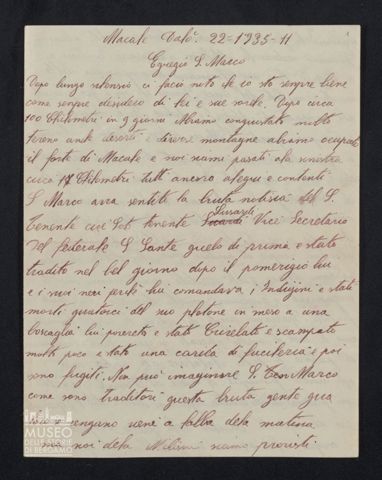 Macale Valò. 22-1935-11
Egregio S. Marco
Dopo lungo silensio ci facio noto che io sto sempre bene
come sempre desidero di lei e sue sorele. Dopo circa
100 Chilometri in 9 giorni Abiamo conquistato molto
tereno ante deserti e diverse montagne abiamo ocupato
il forte di Macale e noi siamo pasati ala sinistra
circa 17 Chilometri tutti ancora alegri e contenti
S Marco avra sentito la bruta notisia del S.
Tenente cioè Sot tenente Tusardi Vice Secretario
Del federale S. Sante quelo di prima e stato
tradito nel bel giorno dopo il pomerigio lui
e i suoi neri perchè lui comandava i Indigini e stati
morti quatordici del suo plotone in meso a una
boscaglia lui povereto e stato Crivelato e scampato
molto poco e stato una carica di fucileria e poi
sono fugiti. Non può imaginare S. Marco
come sono traditori questa bruta gente qua
vengano vene a falba dela matina
noi dela Milisia siamo provisti
MUSEO
DELLE STORIE
DI BERGAMO